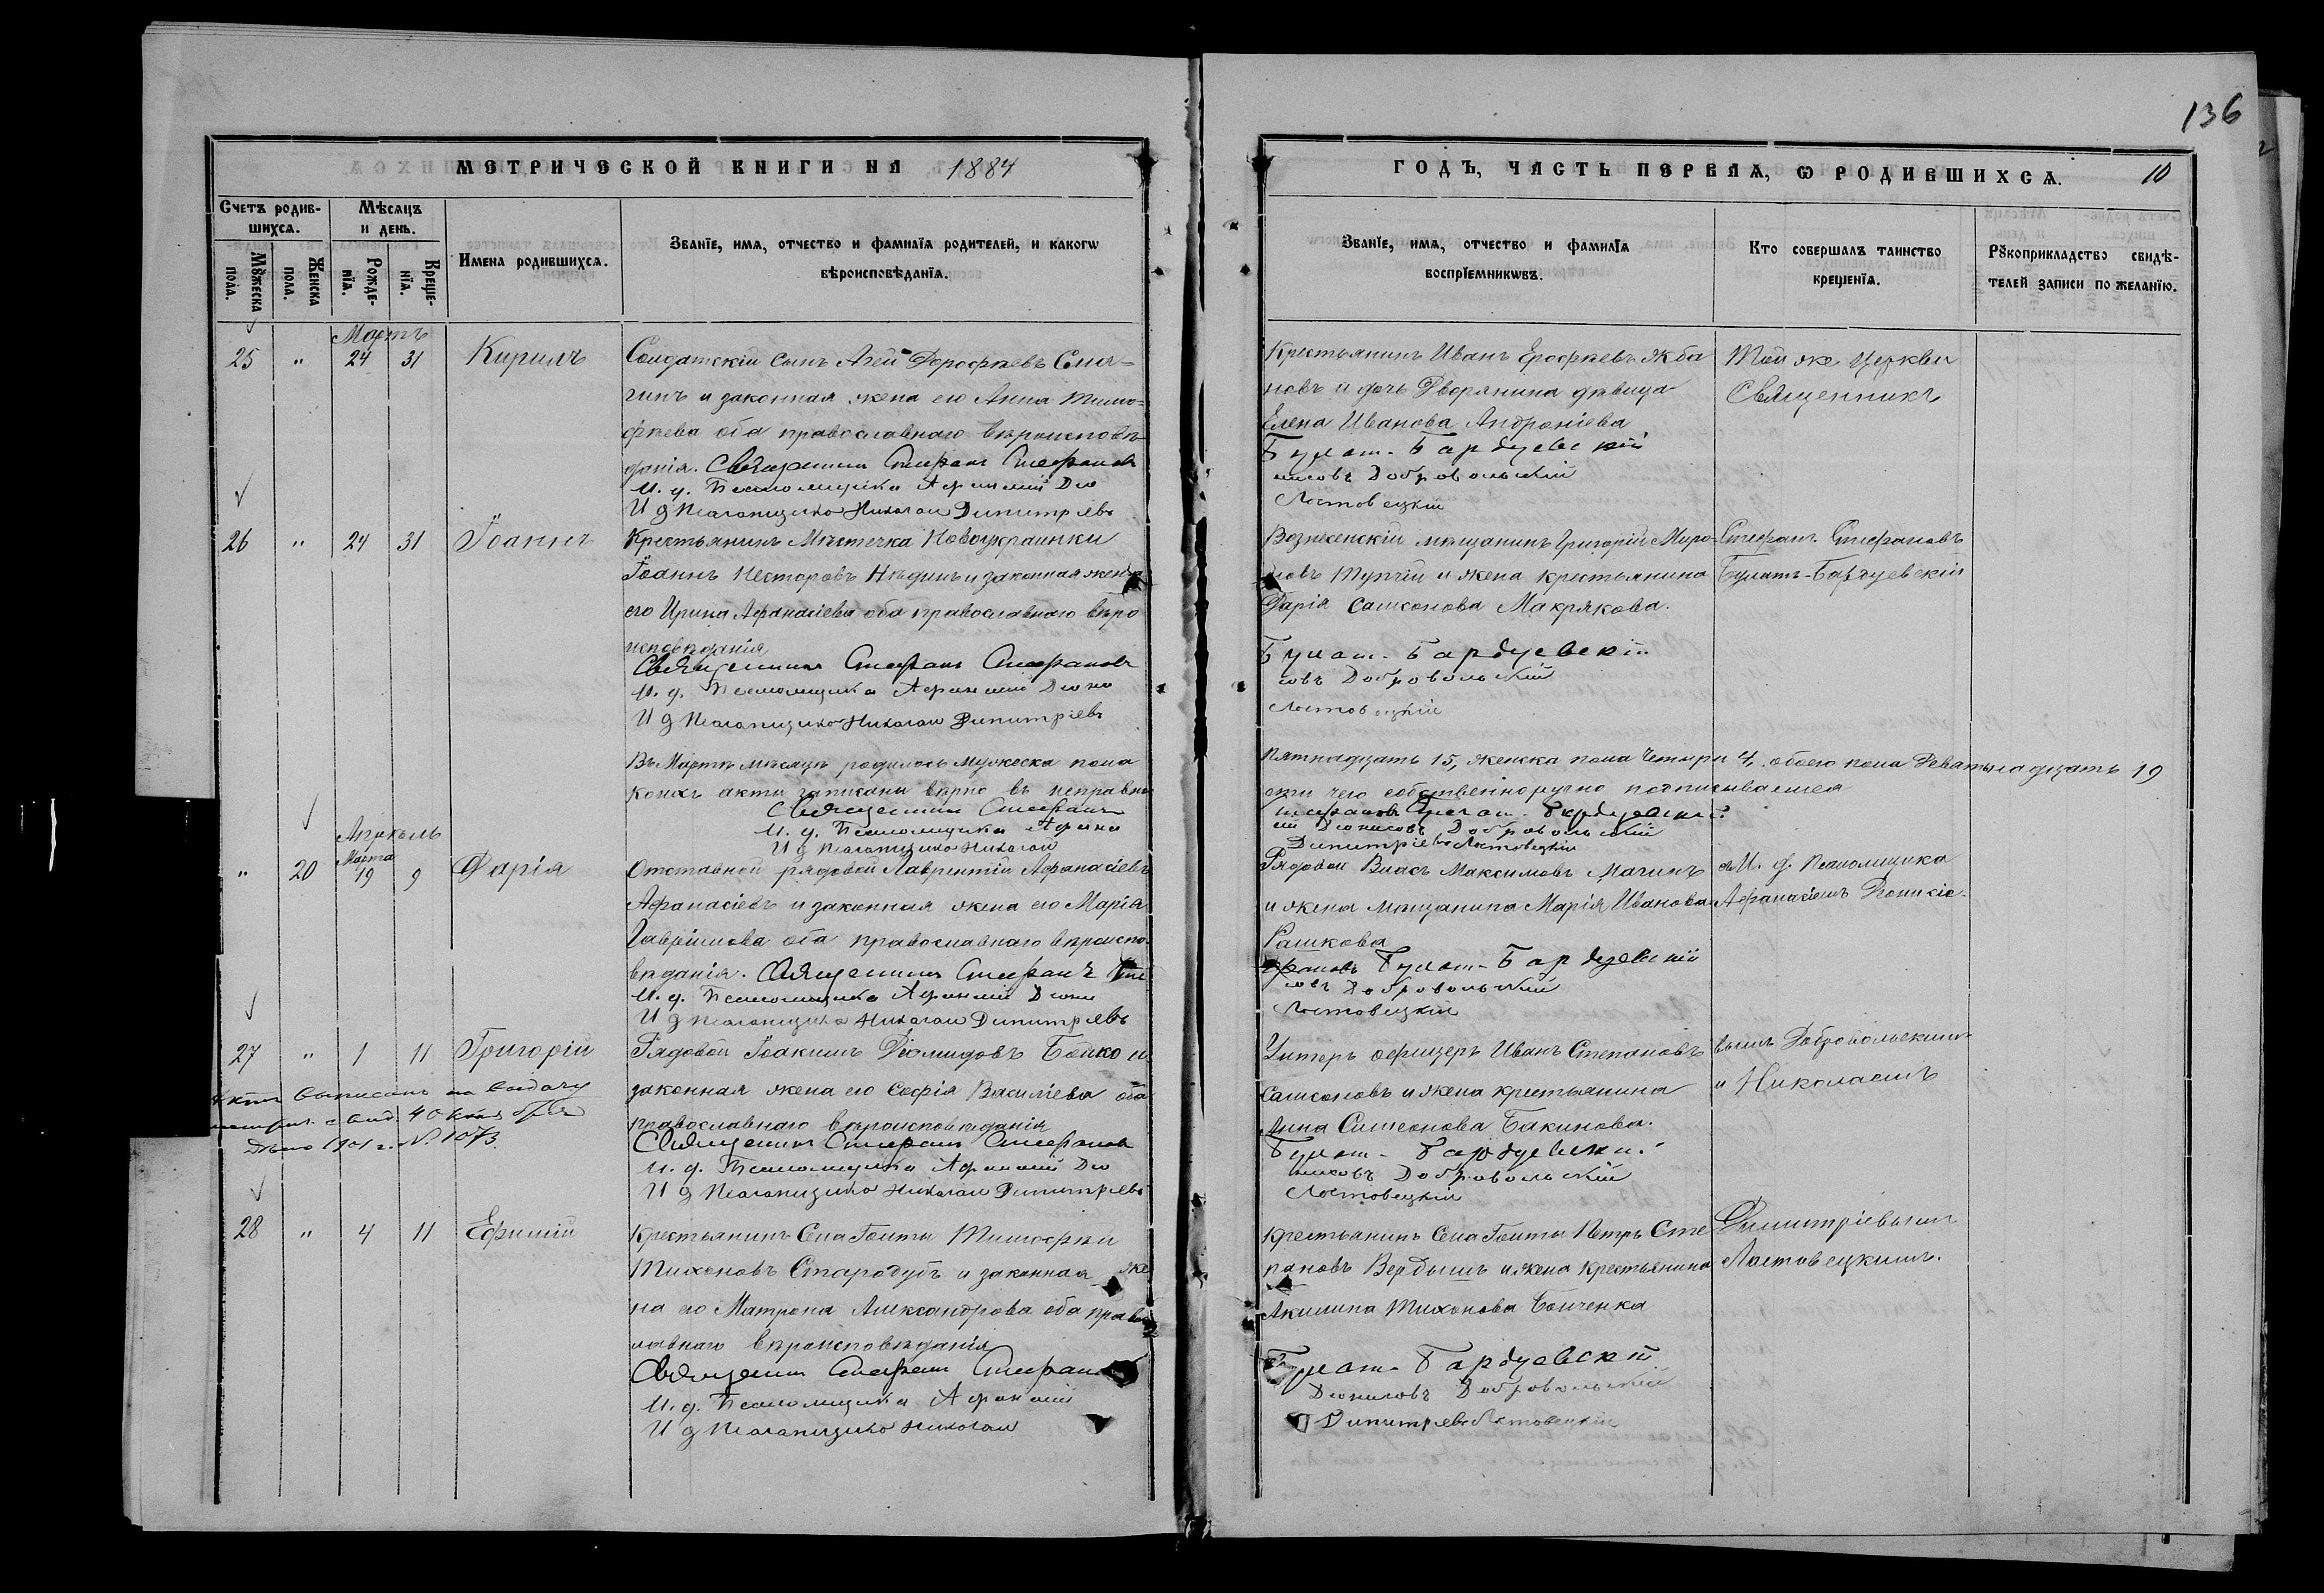 136
МЕТРИЧЕСКОЙ КНИГИ НА 1884
ГОДЪ, ЧАСТЬ ПЕРВАЯ, Ѡ РОДИВШИХСѦ. 10
Счетъ родив-
шихсѧ.
Мѣсяцъ
и день.
Мꙋжеска
пола.
Женска
пола.
Рожде-
нїѧ.
Креще-
нїѧ.
Имена родившихсѧ.
Званїе, имѧ, отчество и фамилїѧ родителей, и какогѡ
вѣроисповѣданїѧ.
Званїе, имѧ, отчество и фамилїѧ
воспрїемникѡвъ.
Кто совершалъ таинство
крещенїѧ.
Рꙋкоприкладство свидѣ-
телей записи по желанїю.
Мартъ
25 " 24 31 Кирилъ
Солдатскій сынъ Агей Дорофѣевъ
и законная жена его Анна Тимо=
фѣева оба православнаго вѣроисповѣ-
данія. Священникъ Стефанъ Стефановъ
И. д. Псаломщика Афанасій Дио
И д Псаломщика Николай Димитріевъ
Крестьянинъ Иванъ Ерофѣевъ Жба
новъ и дочь Дворянина дѣвица
Елена Иванова Андроніева
Булат-Бардуевскій
нисовъ Добровольскій
Лостовецкій
Той же Церкви
Священникъ
26 " 24 31 Іоаннъ
Крестьянинъ Мѣстечка Новоукраинки
Іоаннъ Несторовъ и законная жена
его Ирина Афанасіева оба православнаго вѣро
исповѣданія
Священникъ Стефанъ Стефановъ
И. д. Псаломщика Афанасій Диони
И д Псаломщика Николай Димитріевъ
Вознесенскій мѣщанинъ Григорій Миро-
новъ Тупчій и жена крестьянина
Дарія Самсонова Макрякова.
Булат-Бардуевскій
совъ Добровольскій
Лостовецкій
Стефанъ Стефановъ
Булатъ-Бардуевскій
Въ Мартѣ мѣсяцѣ родилось мужеска пола
Пятнадцать 15, женска пола Четыри 4, обоего пола Девятьнадцать 19
коихъ акты записаны вѣрно въ исправно
сти чего собственноручно подписываемся
Священникъ Стефанъ
Стефановъ Булат-Бардуевскій
И. д. Псаломщика Афана
сій Діонисовъ Добровольскій
И д Псаломщика Николай
Димитріевъ Лостовецкій
Апрѣль
" 20 Марта 19 9 Дарія
Отставной рядовой Лаврентій Афанасіевъ
Афанасіевъ и законная жена его Марія
Гавріилова оба православнаго вѣроиспо-
вѣданія. Священникъ Стефанъ Сте
И. д. Псаломщика Афанасій Диони
И д Псаломщика Николай Димитріевъ
Рядовой Власъ Максимовъ Мачинъ
и жена мѣщанина Марія Иванова
Рашкова
фановъ Булат-Бардуевскій
совъ Добровольскій
Лостовецкій
съ И. д. Псаломщика
Афанасіемъ Діонисіе-
27 " 1 11 Григорій
Рядовой Іоакимъ Діомидовъ Бойко и
законная жена его Софія Василіева оба
православнаго вѣроисповѣданія
Священникъ Стефанъ Стефановъ
И. д. Псаломщика Афанасій Дио
И д Псаломщика Николай Димитріевъ
Унтеръ офицеръ Иванъ Степановъ
Самсоновъ и жена крестьянина
Анна Симеонова Бакинова.
Булат-Бардуевскій
нисовъ Добровольскій
Лостовецкій
вымъ Добровольскимъ
и Николаемъ
Актъ выписанъ на выдачу
метрич. свид.
Дѣло 1901 г. № 1073.
28 " 4 11 Ефимій
Крестьянинъ Села Гонты Тимофей
Тихоновъ Стародубъ и законная же
на его Матрона Александрова оба право
славнаго вѣроисповѣданія
Священникъ Стефанъ Стефановъ
И. д. Псаломщика Афанасій
И д Псаломщика Николай
Крестьянинъ Села Гонты Петръ Сте
пановъ Вербышъ и жена Крестьянина
Акилина Тихонова Бойченка
Булат-Бардуевскій
Дионисовъ Добровольскій
Димитріевъ Лостовецкій
Димитріевымъ
Лостовецкимъ.